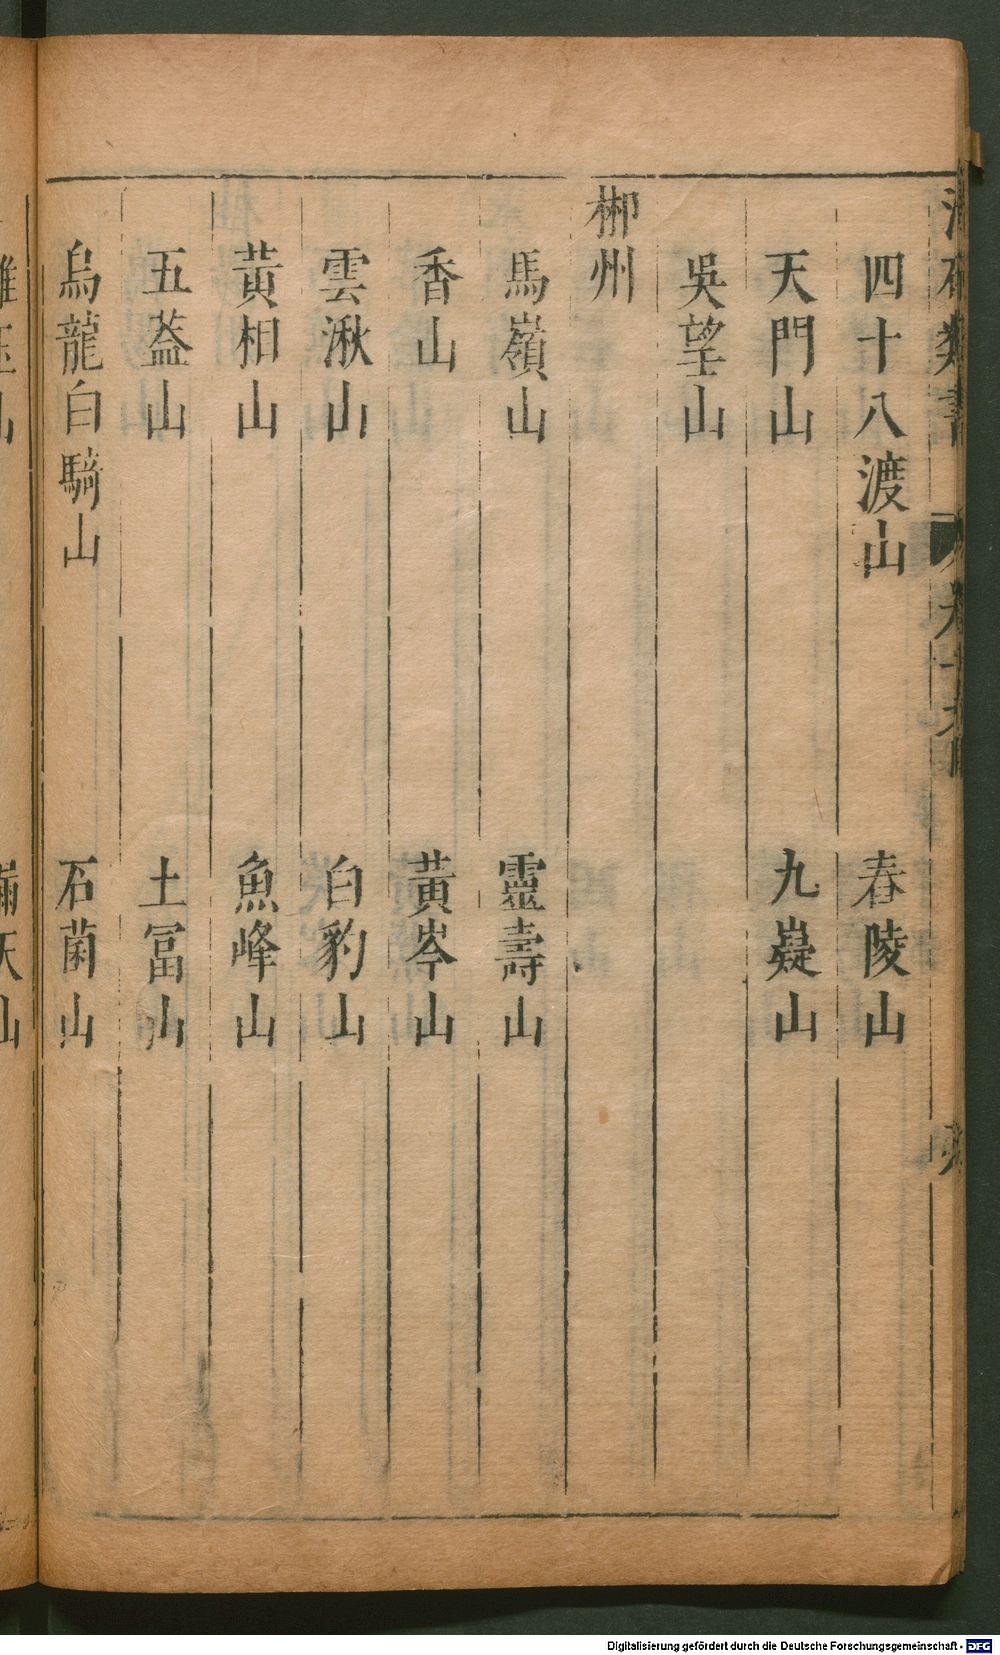 四十八渡山 舂陵山
天門山 九嶷山
吳望山
郴州
馬嶺山 靈壽山
香山 黃岑山
雲湫山 白豹山
黃相山 魚峰山
五葢山 土冨山
烏龍白騎山 石菌山
Digitalisierung gefördert durch die Deutsche Forschungsgemeinschaft - DFG